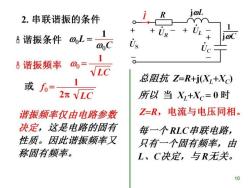 2. 串联谐振的条件
谐振条件 ω₀L = 1/(ω₀C)
谐振频率 ω₀ = 1/√(LC)
或 f₀ = 1/(2π√(LC))
谐振频率仅由电路参数
决定，这是电路的固有
性质。因此谐振频率又
称固有频率。
İ R jωL
+ + U̇R − + U̇L − +
U̇S U̇C 1/(jωC)
− −
总阻抗 Z=R+j(XL+XC)
所以 当 XL+XC = 0 时
Z=R，电流与电压同相。
每一个RLC串联电路，
只有一个固有频率，由
L、C决定，与R无关。
10